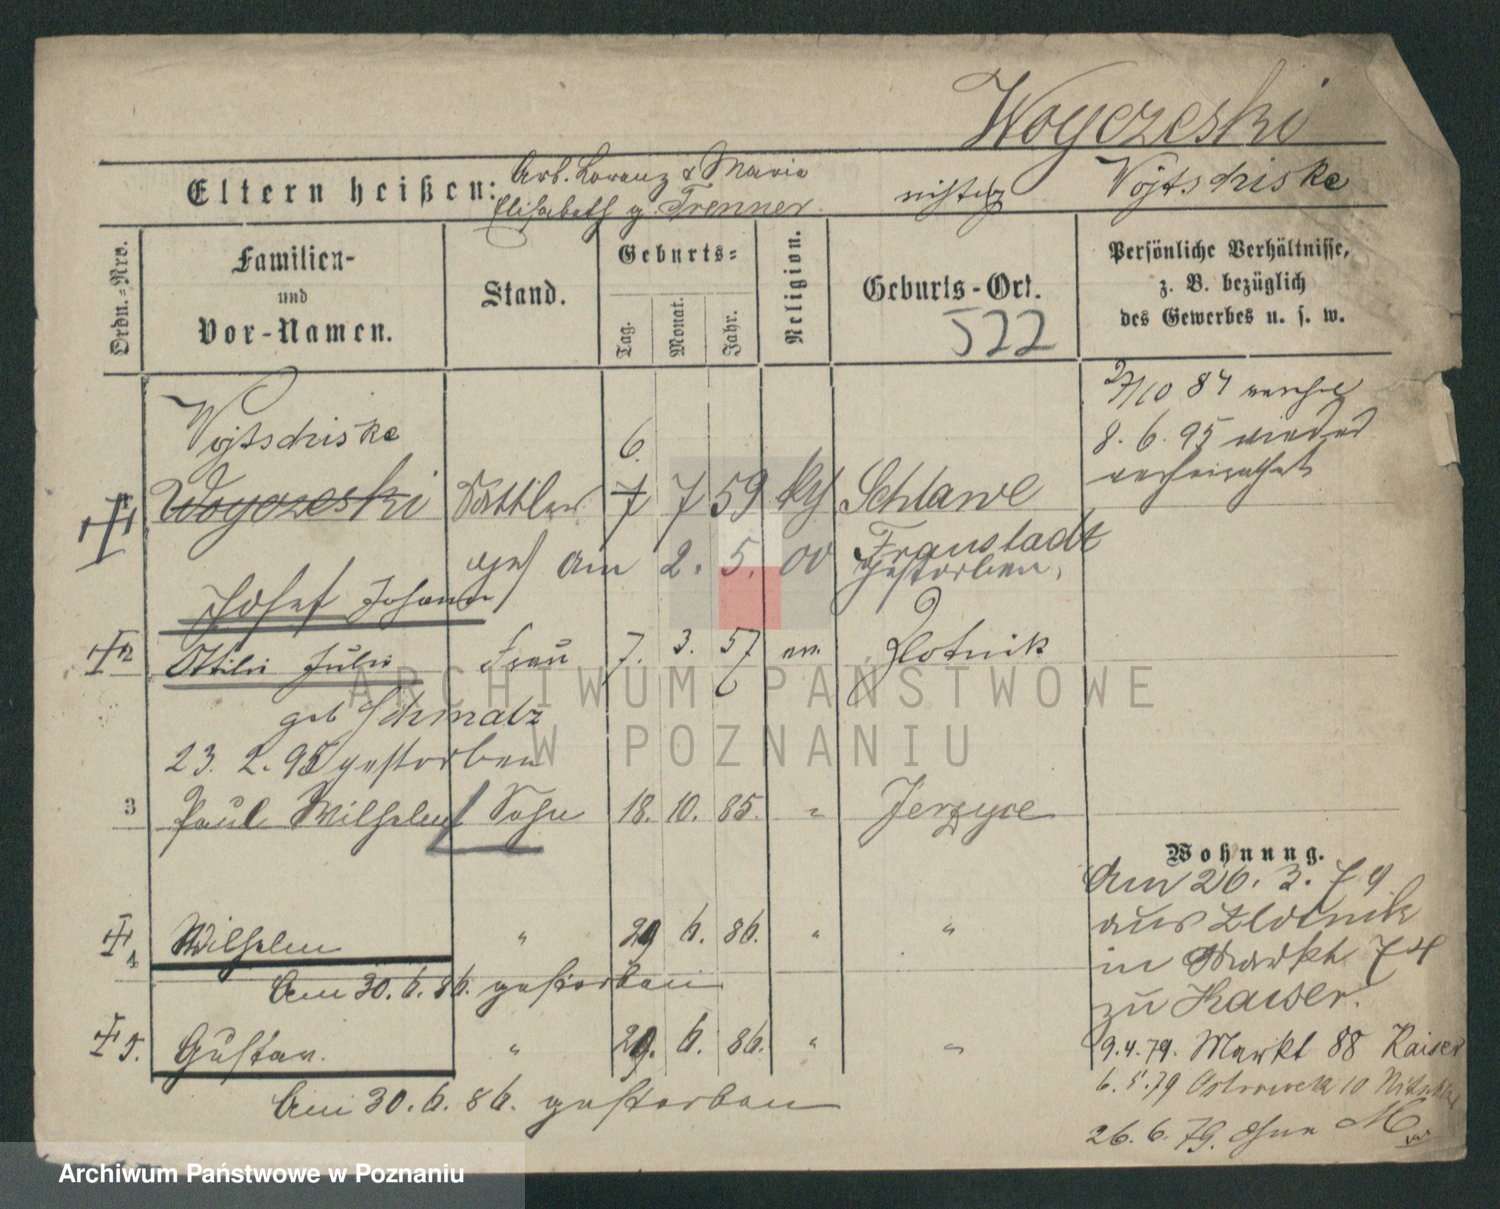 Woyczeski
Eltern heißen: Arb. Lorenz & Maria
Elisabeth g. Trenner.
richtig Vojtschiske
Ordn.-Nro.
Familien-
und
Vor-Namen.
Stand.
Geburts-
Tag.
Monat.
Jahr.
Religion.
Geburts-Ort.
522
Persönliche Verhältnisse,
z. B. bezüglich
des Gewerbes u. s. w.
27/10 84 verehel
8. 6. 95 wieder
verheirathet
Vojtschiske
6.
Woyczeski Sattler 7 7 59 kth Schlawe
Fraustadt
gest am 2. 5. 00 gestorben.
Josef Johann
2 Ottilie Julie Frau 7. 3. 57 ev. Zlotnik
geb Schmalz
23. 2. 95 gestorben
3 Paul Wilhelm Sohn 18. 10. 85. " Jerzyce
4 Wilhelm " 29 6. 86. " "
Am 30. 6. 86. gestorben
5. Gustav. " 29. 6. 86. " "
Am 30. 6. 86. gestorben
Wohnung.
Am 26. 3. 79
aus Zlotnik
in Markt 74
zu Kaiser.
9.4.79. Markt 88 Kaiser
6. 5.79 Ostrowek 10
26. 6. 79. ohne
ARCHIWUM PAŃSTWOWE
W POZNANIU
Archiwum Państwowe w Poznaniu